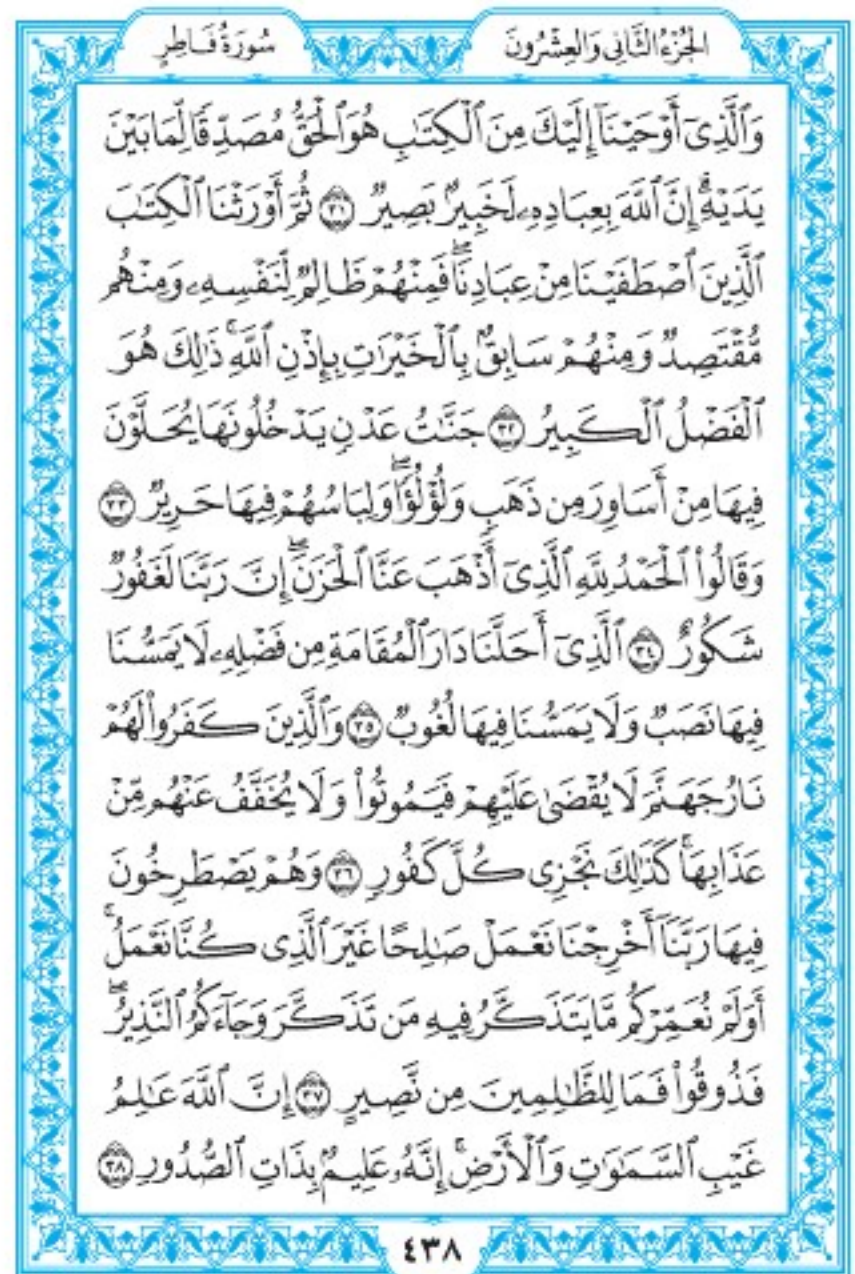 سُورَةُ فَاطِرٍ
الجُزْءُ الثَّانِي وَالعِشْرُونَ
وَٱلَّذِىٓ أَوْحَيْنَآ إِلَيْكَ مِنَ ٱلْكِتَٰبِ هُوَ ٱلْحَقُّ مُصَدِّقًا لِّمَا بَيْنَ
يَدَيْهِۗ إِنَّ ٱللَّهَ بِعِبَادِهِۦ لَخَبِيرٌۢ بَصِيرٌ ٣١ ثُمَّ أَوْرَثْنَا ٱلْكِتَٰبَ
ٱلَّذِينَ ٱصْطَفَيْنَا مِنْ عِبَادِنَاۖ فَمِنْهُمْ ظَالِمٌ لِّنَفْسِهِۦ وَمِنْهُم
مُّقْتَصِدٌ وَمِنْهُمْ سَابِقٌۢ بِٱلْخَيْرَٰتِ بِإِذْنِ ٱللَّهِۚ ذَٰلِكَ هُوَ
ٱلْفَضْلُ ٱلْكَبِيرُ ٣٢ جَنَّٰتُ عَدْنٍ يَدْخُلُونَهَا يُحَلَّوْنَ
فِيهَا مِنْ أَسَاوِرَ مِن ذَهَبٍ وَلُؤْلُؤًاۖ وَلِبَاسُهُمْ فِيهَا حَرِيرٌ ٣٣
وَقَالُوا۟ ٱلْحَمْدُ لِلَّهِ ٱلَّذِىٓ أَذْهَبَ عَنَّا ٱلْحَزَنَۖ إِنَّ رَبَّنَا لَغَفُورٌ
شَكُورٌ ٣٤ ٱلَّذِىٓ أَحَلَّنَا دَارَ ٱلْمُقَامَةِ مِن فَضْلِهِۦ لَا يَمَسُّنَا
فِيهَا نَصَبٌ وَلَا يَمَسُّنَا فِيهَا لُغُوبٌ ٣٥ وَٱلَّذِينَ كَفَرُوا۟ لَهُمْ
نَارُ جَهَنَّمَ لَا يُقْضَىٰ عَلَيْهِمْ فَيَمُوتُوا۟ وَلَا يُخَفَّفُ عَنْهُم مِّنْ
عَذَابِهَاۚ كَذَٰلِكَ نَجْزِى كُلَّ كَفُورٍ ٣٦ وَهُمْ يَصْطَرِخُونَ
فِيهَا رَبَّنَآ أَخْرِجْنَا نَعْمَلْ صَٰلِحًا غَيْرَ ٱلَّذِى كُنَّا نَعْمَلُۚ
أَوَلَمْ نُعَمِّرْكُم مَّا يَتَذَكَّرُ فِيهِ مَن تَذَكَّرَ وَجَآءَكُمُ ٱلنَّذِيرُۖ
فَذُوقُوا۟ فَمَا لِلظَّٰلِمِينَ مِن نَّصِيرٍ ٣٧ إِنَّ ٱللَّهَ عَٰلِمُ
غَيْبِ ٱلسَّمَٰوَٰتِ وَٱلْأَرْضِۚ إِنَّهُۥ عَلِيمٌۢ بِذَاتِ ٱلصُّدُورِ ٣٨
٤٣٨